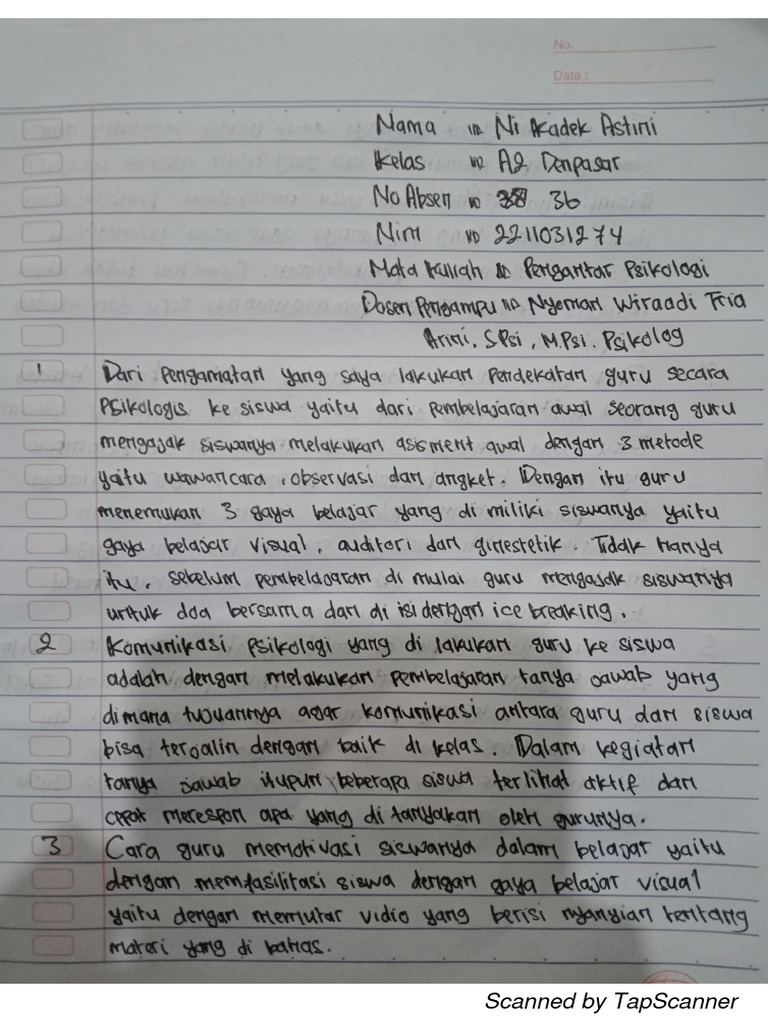 No.
Date :
Nama : Ni Kadek Astini
Kelas : A2 Denpasar
No Absen : 36
Nim : 2211031274
Mata Kuliah : Pengantar Psikologi
Dosen Pengampu : Nyoman Wiraadi Tria
Arini, S.Psi, M.Psi. Psikolog
1 Dari pengamatan yang saya lakukan pendekatan guru secara
psikologis ke siswa yaitu dari pembelajaran awal seorang guru
mengajak siswanya melakukan asisment awal dengan 3 metode
yaitu wawancara, observasi dan angket. Dengan itu guru
menemukan 3 gaya belajar yang di miliki siswanya yaitu
gaya belajar visual, auditori dan ginestetik. Tidak hanya
itu, sebelum pembelajaran di mulai guru mengajak siswanya
untuk doa bersama dan di isi dengan ice breaking.
2 Komunikasi psikologi yang di lakukan guru ke siswa
adalah dengan melakukan pembelajaran tanya jawab yang
dimana tujuannya agar komunikasi antara guru dan siswa
bisa terjalin dengan baik di kelas. Dalam kegiatan
tanya jawab itupun beberapa siswa terlihat aktif dan
cepat merespon apa yang di tanyakan oleh gurunya.
3 Cara guru memotivasi siswanya dalam belajar yaitu
dengan memfasilitasi siswa dengan gaya belajar visual
yaitu dengan memutar vidio yang berisi nyanyian tentang
materi yang di bahas.
Scanned by TapScanner